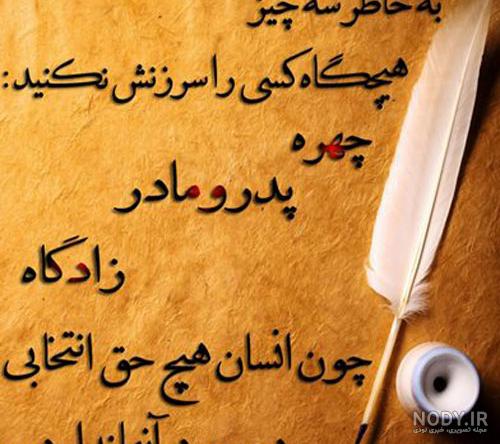 به خاطر سه چیز
هیچگاه کسی را سرزنش نکنید:
چهره
پدر و مادر
زادگاه
چون انسان هیچ حق انتخابی
در آنها ندارد
NODY.IR
مجله تصویری، خبری نودی